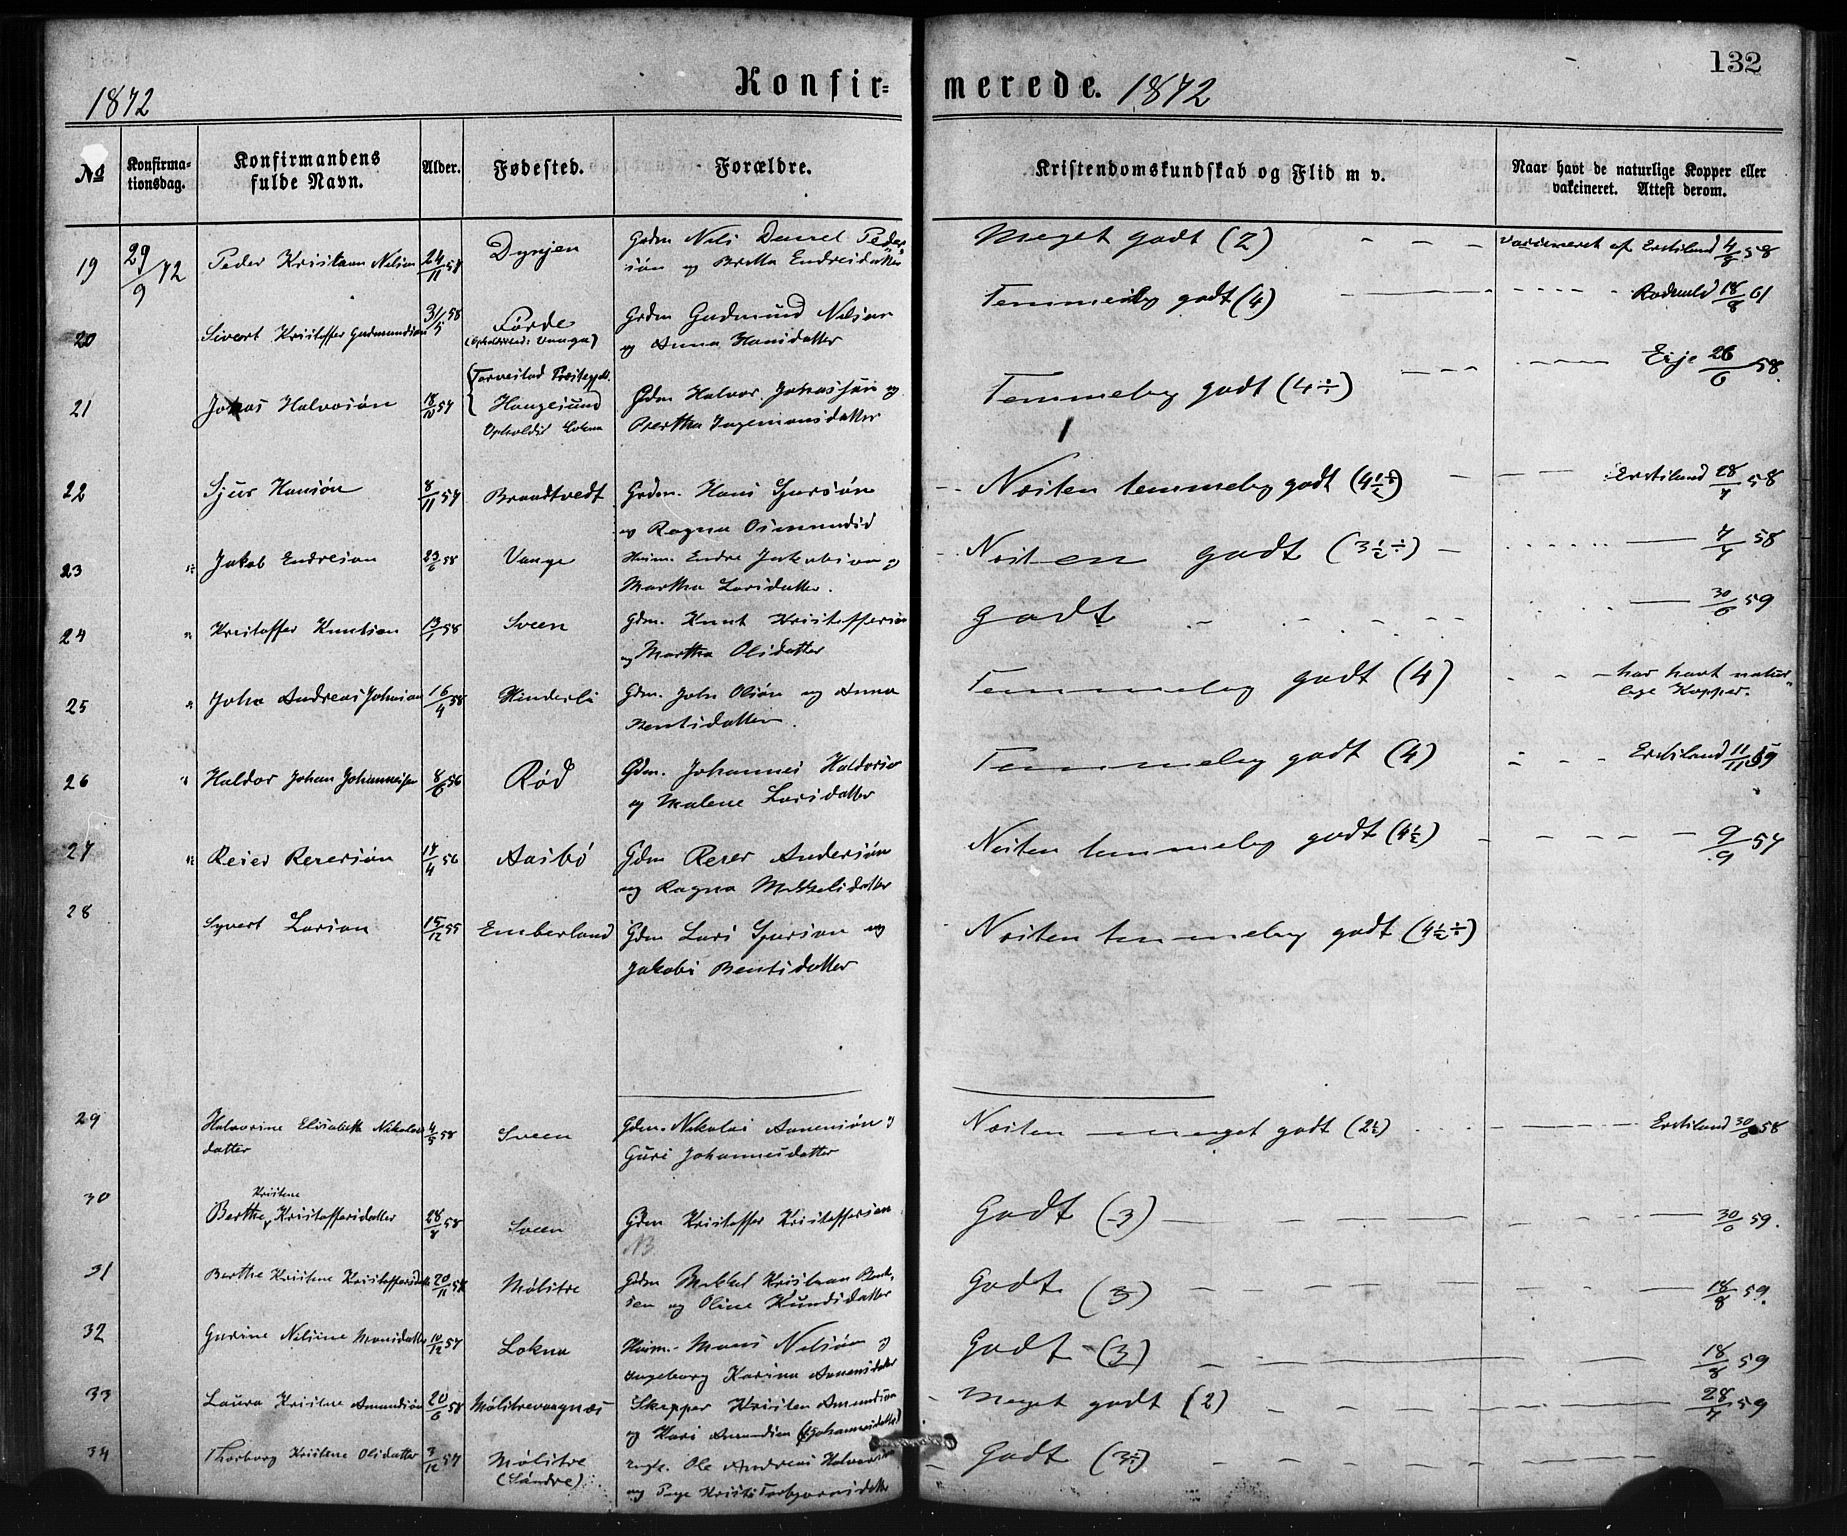 132
Konfirmerede.
1872
1872
No
Konfirmationsdag.
Konfirmandens fulde Navn.
Alder.
Fødested.
Forældre.
Kristendomskundskab og Flid m v.
Naar havt de naturlige Kopper eller vakcineret. Attest derom.
19 29/9 72 Peder Kristian Nelsen 24/11 58 Dynjen Grdm Nels Peder-
søn og Britta Endresdatter
Meget godt (2) - - - vaccineret af Erstiland 4/8 58
20 Sivert Kristoffer Gudmundsøn 31/5 58 Førde Grdm Gudmund Nelsen
(Opholdssted: Vaage) og Anna Hansdatter
Temmelig godt (4) 18/8 61
21 Johas Halvosøn 18/10 57 (Torvestad Præstegjeld.
Haugesund Gdm Halvor Johassøn og
Ophold Lokna Brertha Ingemansdatter
Temmelig godt (4÷) Eije 26/6 58.
22 Sjur Hansøn 8/11 57 Brandtvedt Grdm. Hans Sjursøn
og Ragna Osmundsd
Næsten temmelig godt (4½÷) Erstiland 28/7 58
23 " Jakob Endresøn 23/6 58 Vaage Husm. Endre Jakobsøn og
Martha Larsdatter.
Næsten godt (3½÷) 7/7 58
24 " Kristoffer Knutsen 13/1 58 Sveen Gdm. Knut Kristoffersøn
og Martha Olsdatter
Godt 30/6 59
25 " John Andreas Johnsen 16/4 58 Hinderli Gdm. John Olsøn og Anna
Bentsdatter.
Temmelig godt (4) - - - har havt natur-
lige Kopper.
26 " Haldor Johan Johannessen 8/6 56 Rød Gdm. Johannes Haldorsø
og Malene Larsdatter
Temmelig godt (4) - - - Erstiland 11/11 59
27 " Reier Reiersøn 18/4 56 Aasbø Gdm Reier Andersøn
og Ragna Mikkelsdatter
Næsten temmelig godt (4½) 9/9 57
28 Syvert Larsøn 15/12 55 Emberland Gdm Lars Sjursøn og
Jakobi Bentsdatter
Næsten temmelig godt (4½÷)
29 Halvorine Elisabeth Nikolai 4/5 58 Sveen Gdm. Nikolai Amensøn og
datter Guri Johannesdatter
Næsten meget godt (2½) Erstiland 30/6 58
30 Kristine
Berthe Kristoffersdatter 28/8 58 Sveen Gdm Kristoffer Kristoffersen
NB.
Godt (3) 30/6 59.
31 Berthe Kristine Kristoffersd 20/11 58 Mølstre Gdm Mikkel Kristian Bent-
sen og Oline Knudsdatter
Godt (3) 18/8 59.
32 Gurine Nelsine Monsdatter 10/12 57 Lokna Husm. Mons Nelsøn og
Ingeborg Karina Amensdatter
Godt (3) 18/8 59
33 Laura Kristine Amundsøn 20/6 58 Mølstrevaagnæs Skipper Kristen Amundsøn
og Kari Amundsen (Johannesdatter)
Meget godt (2) 28/7 59
34 Thorborg Kristine Olsdatter 3/12 57 Mølstre Ole Andreas Halvorsen
(Søndre) og Pige Kristi Torbjørnsdatter
Godt (3÷)